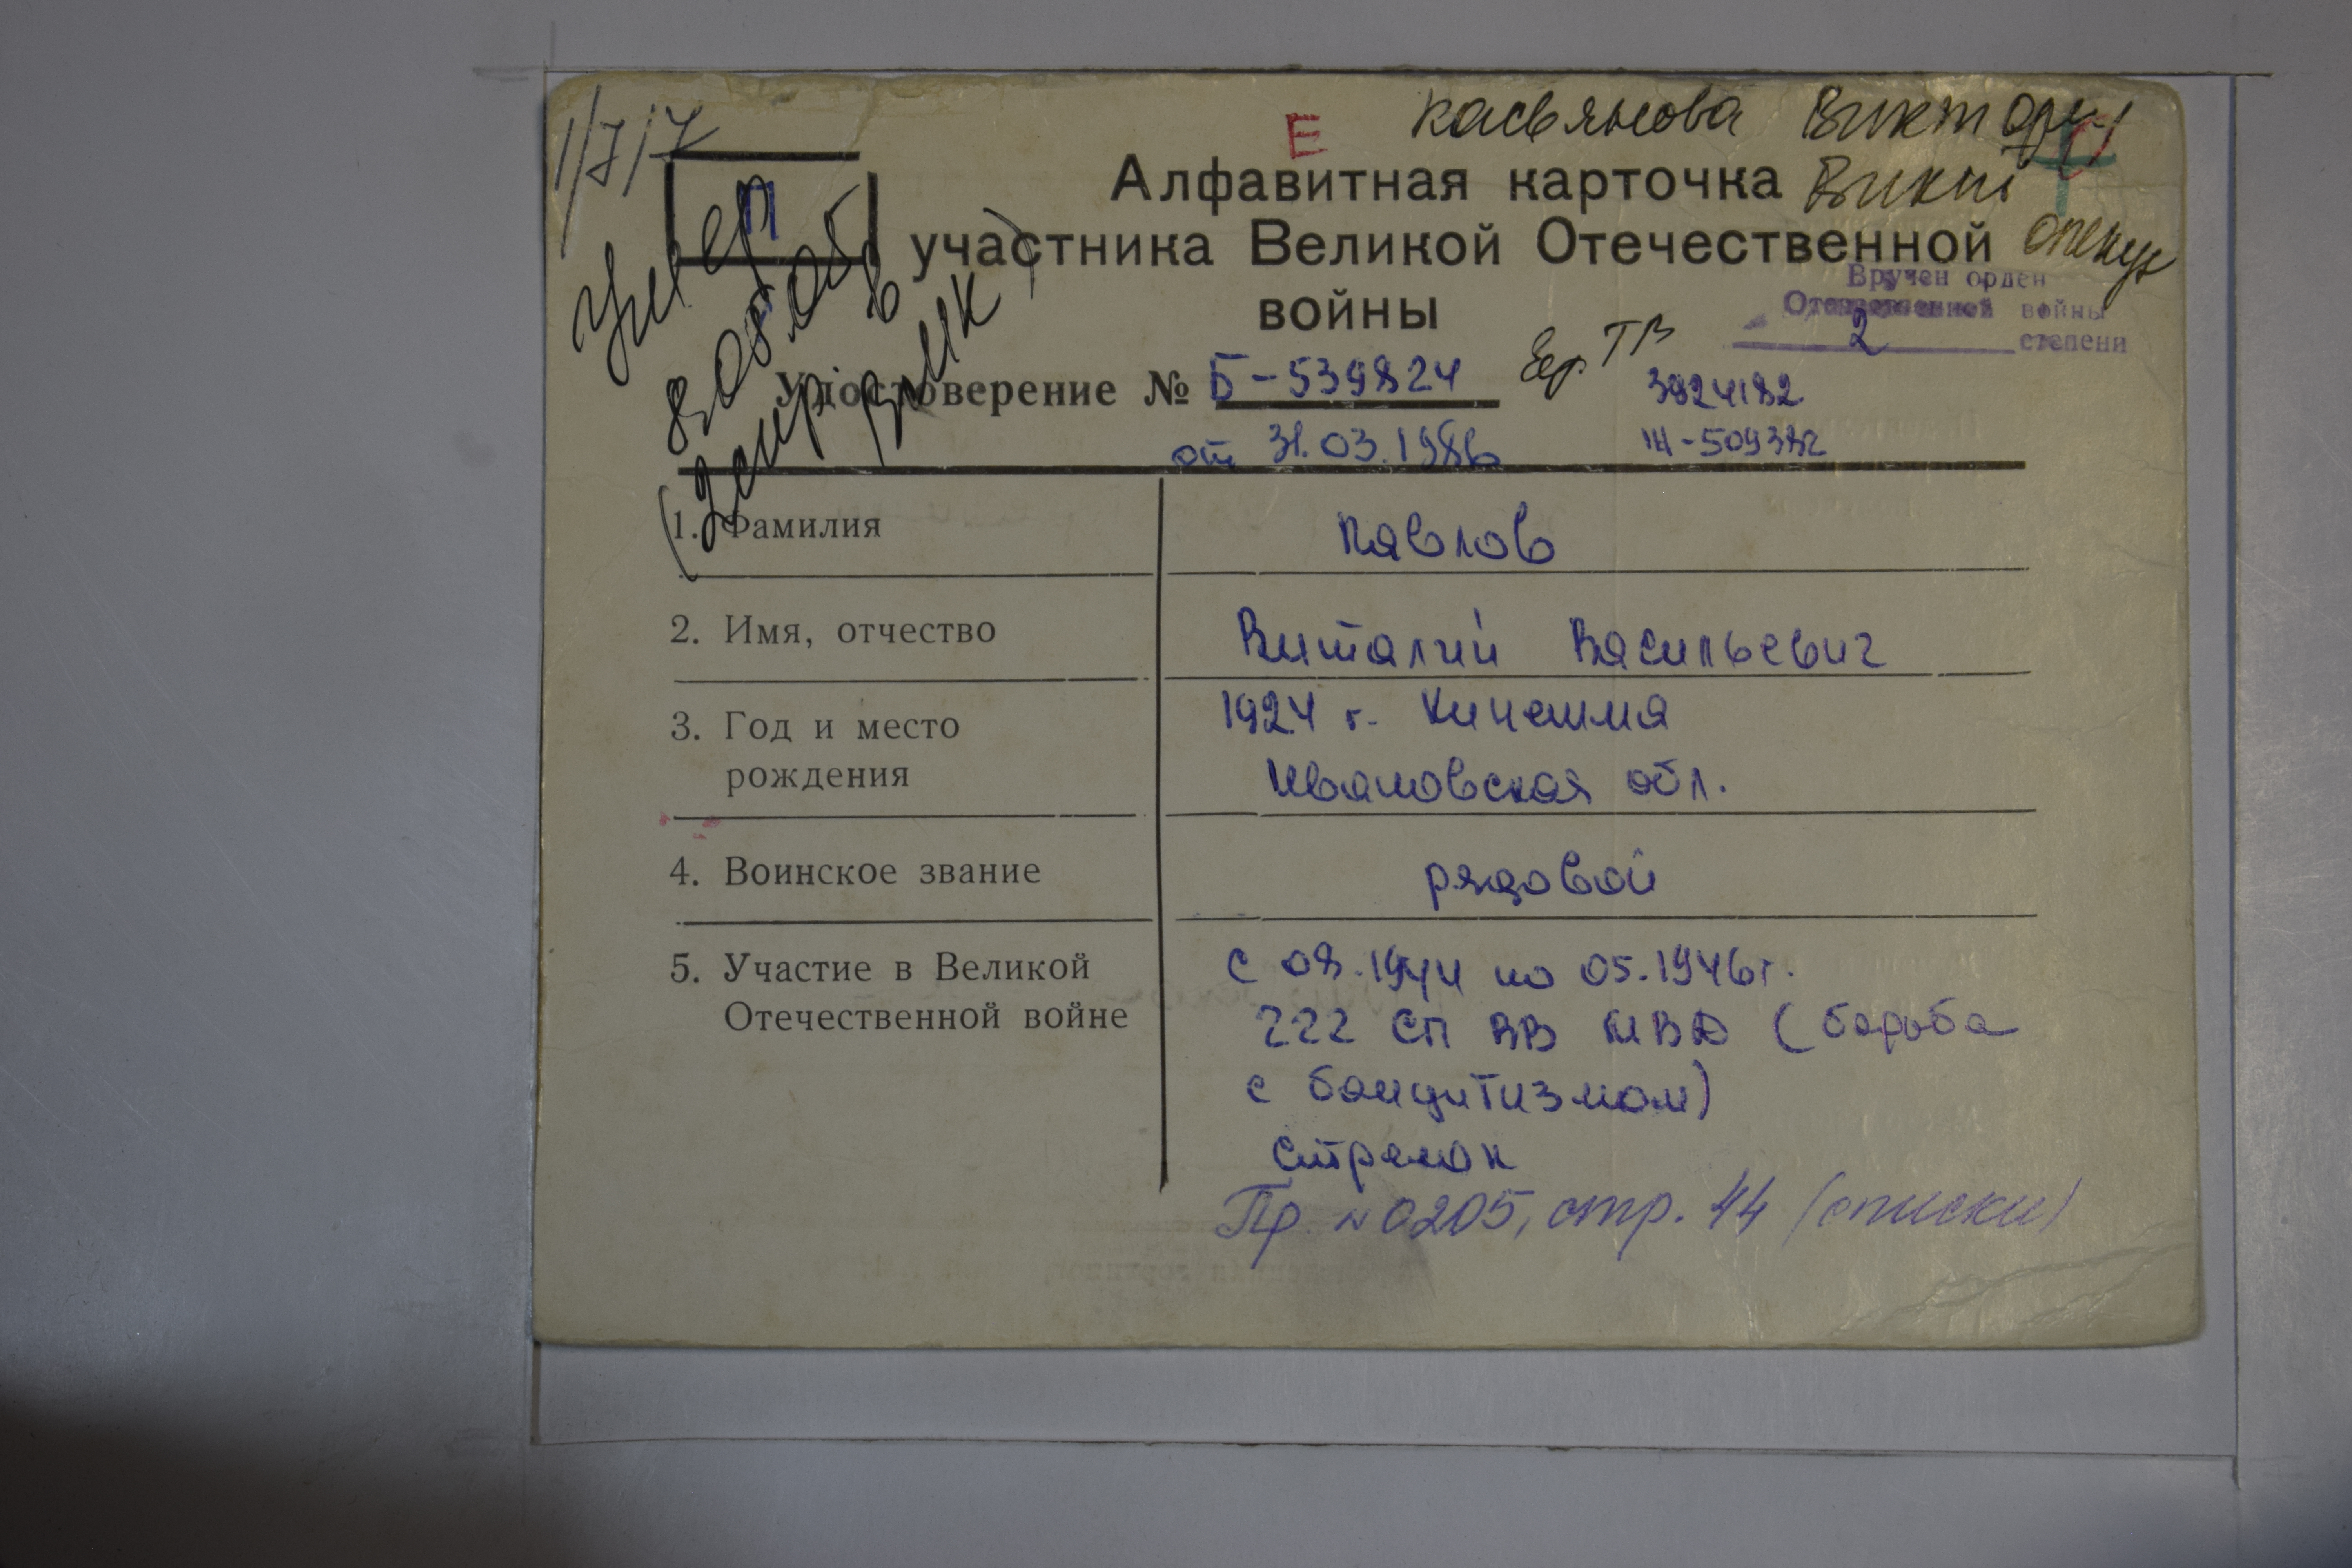 Е Касьянова Виктори
1/7/7
П
Алфавитная карточка Викт
участника Великой Отечественной опекун
войны
Вручен орден
Отечественной войны
2 степени
умер
Удостоверение № Б-539824
3924182
от 31.03.1986
1. Фамилия Павлов
2. Имя, отчество Виталий Васильевич
3. Год и место 1924 г. Кинешма
рождения Ивановская обл.
4. Воинское звание рядовой
5. Участие в Великой с 08.1944 по 05.1946г.
Отечественной войне 222 СП ВВ МВД (борьба
с бандитизмом)
стрелок
Пр. №0205, стр. 44 (списки)